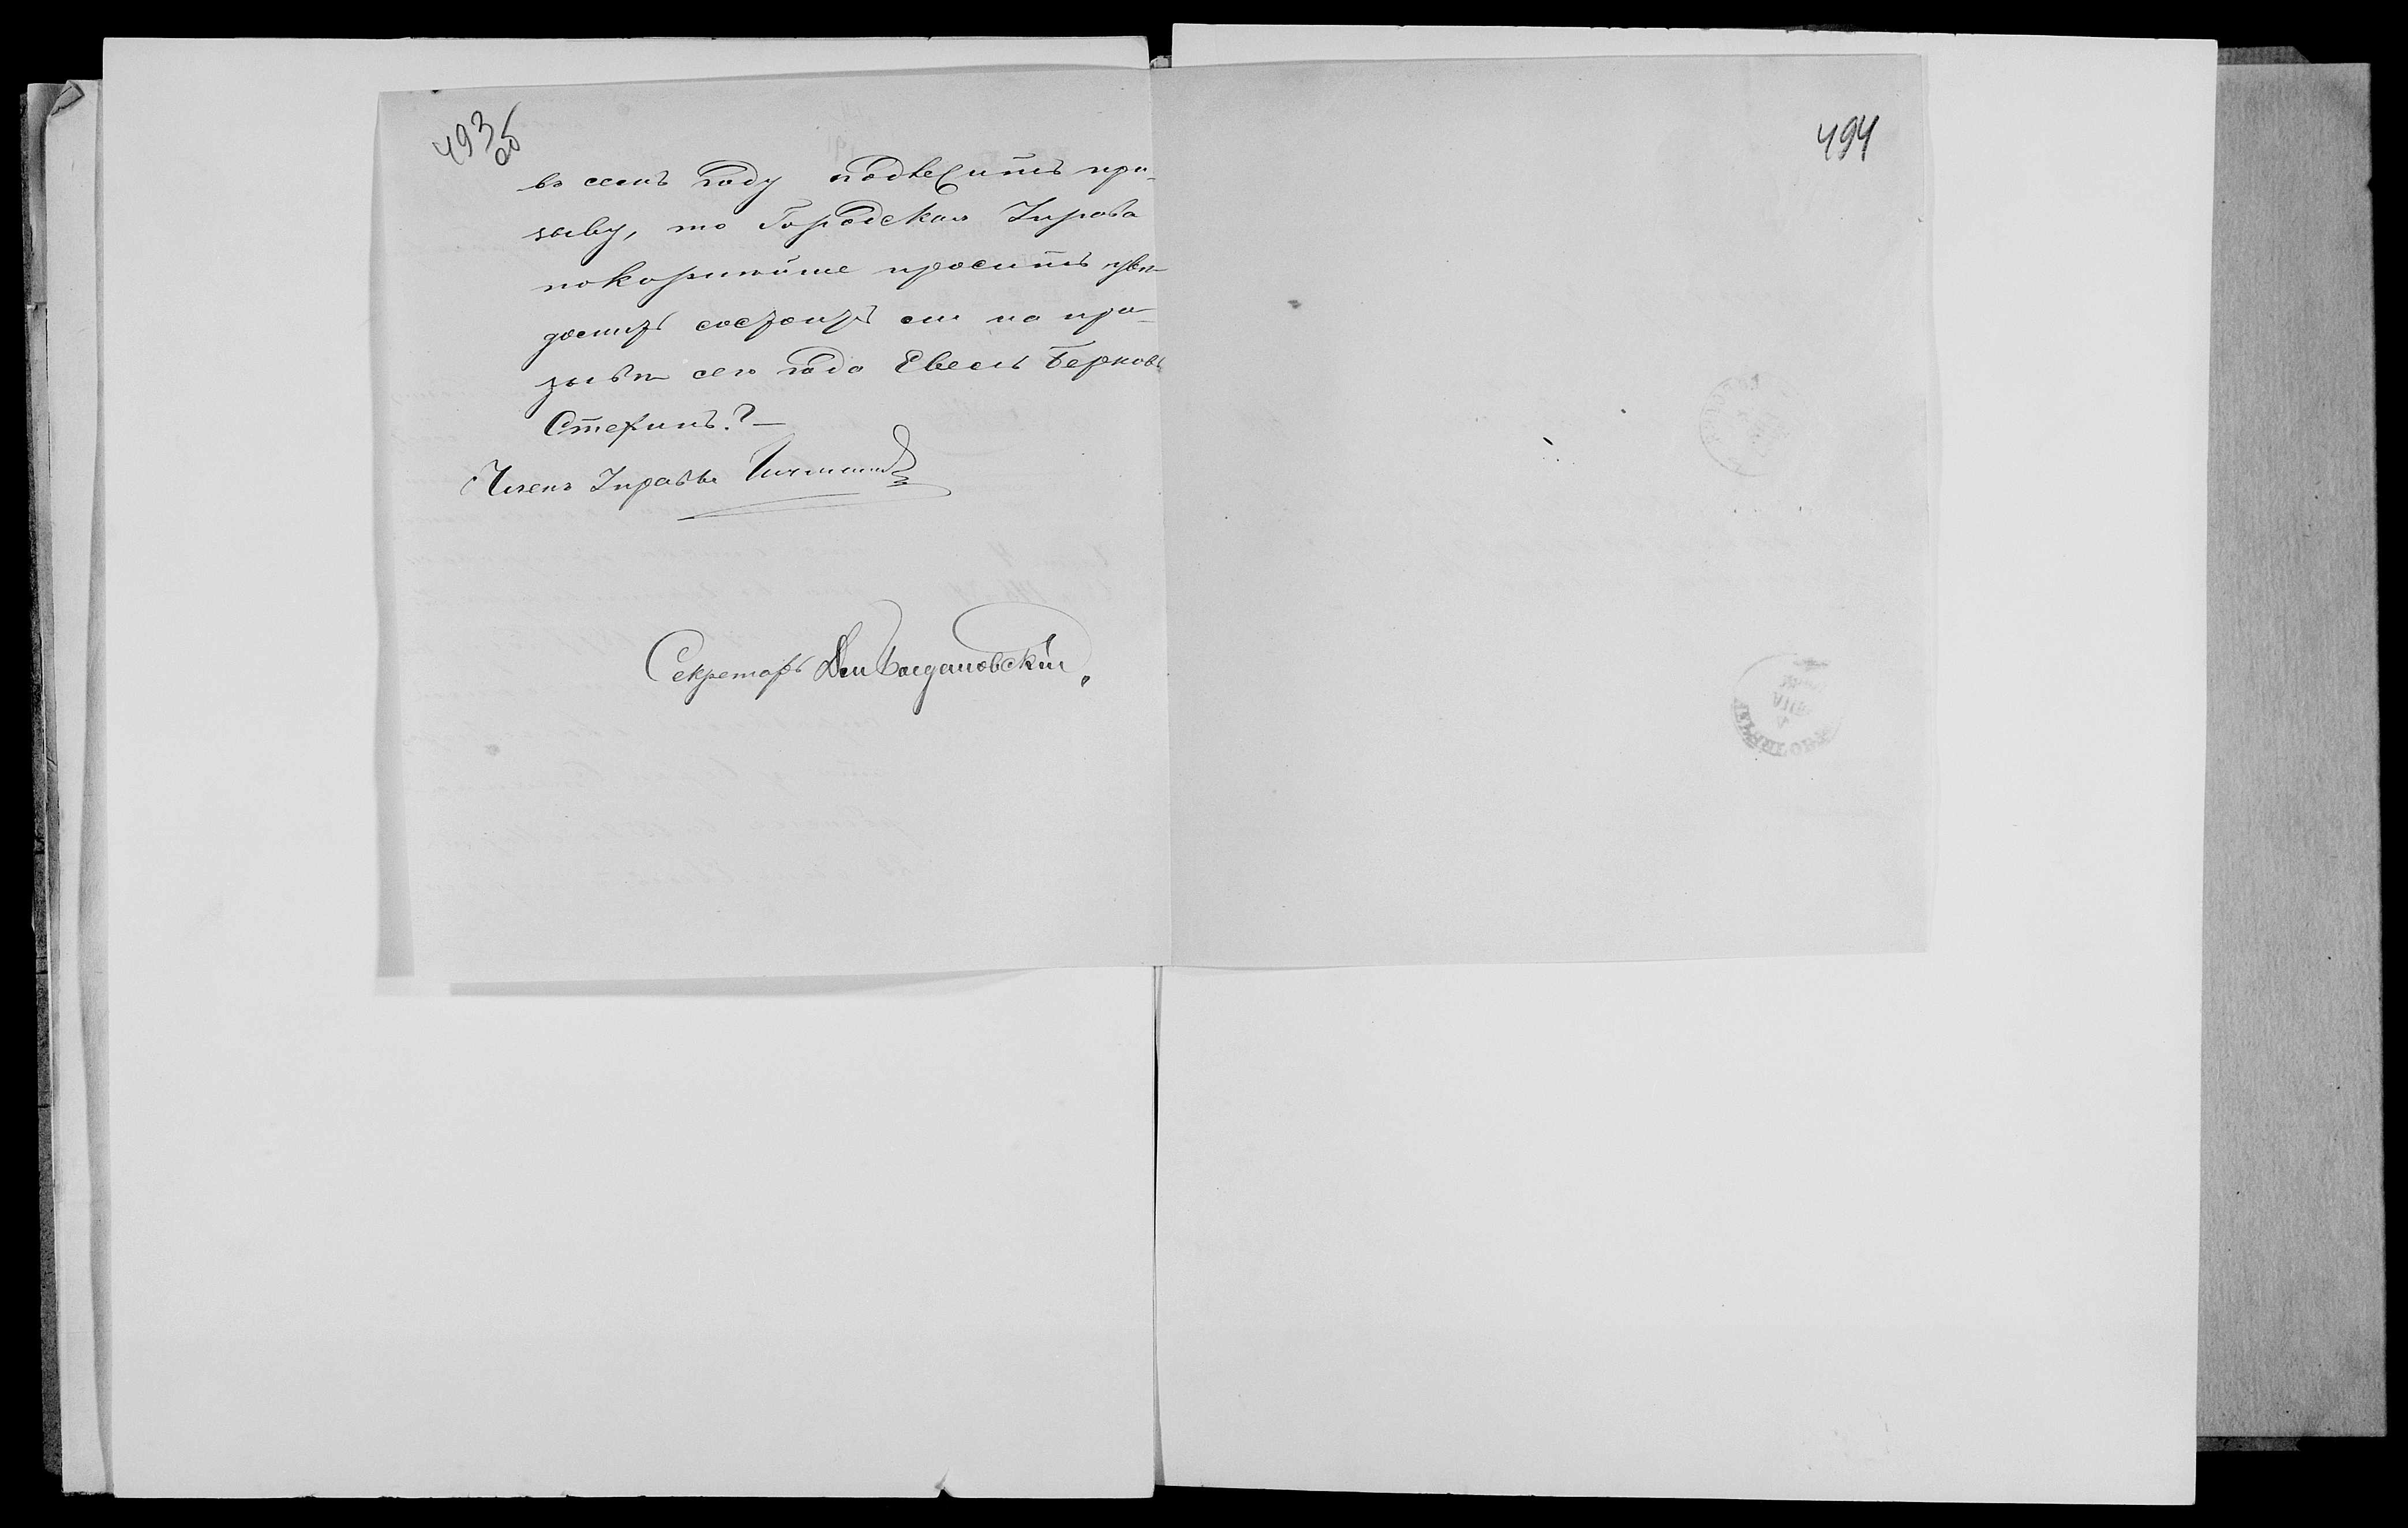 493 об
въ семъ году подлежитъ при-
зыву, то Городская Управа
покорнѣйше проситъ увѣ-
домить состоитъ ли на при-
зывѣ сего года Евель Берковъ
Стеринъ? —
Членъ Управы
Секретарь Богдановскій
494